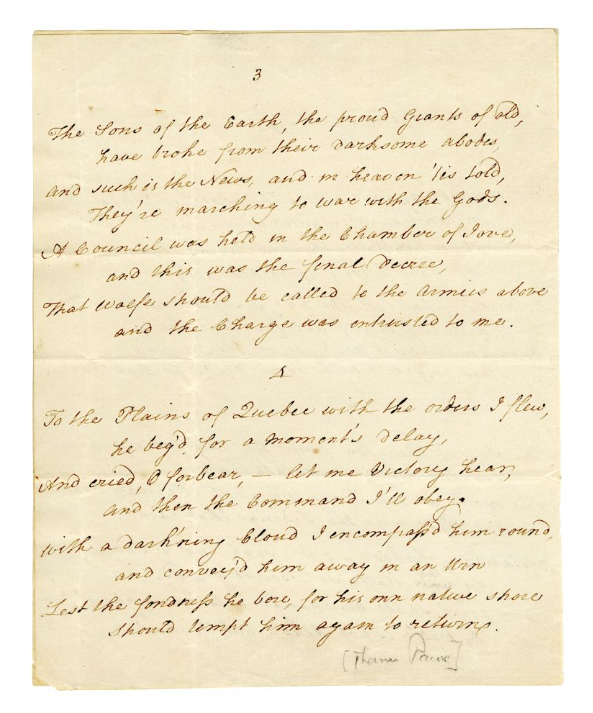 3
The Sons of the Earth, the proud Giants of old,
have broke from their darksome abodes,
and such is the News, and in heaven 'tis told,
They're marching to war with the Gods.
A Council was held in the Chamber of Jove,
and this was the final Decree,
That Wolfe should be called to the Armies above
and the Charge was entrusted to me.
4
To the Plains of Quebec with the orders I flew,
he beg'd for a moment's delay,
And cried, O forbear, — let me Victory hear,
and then the Command I'll obey.
with a dark'ning Cloud I encompass'd him round,
and convey'd him away in an Urn
Lest the fondness he bore, for his own native shore
should tempt him again to return.
[Thomas Paine]